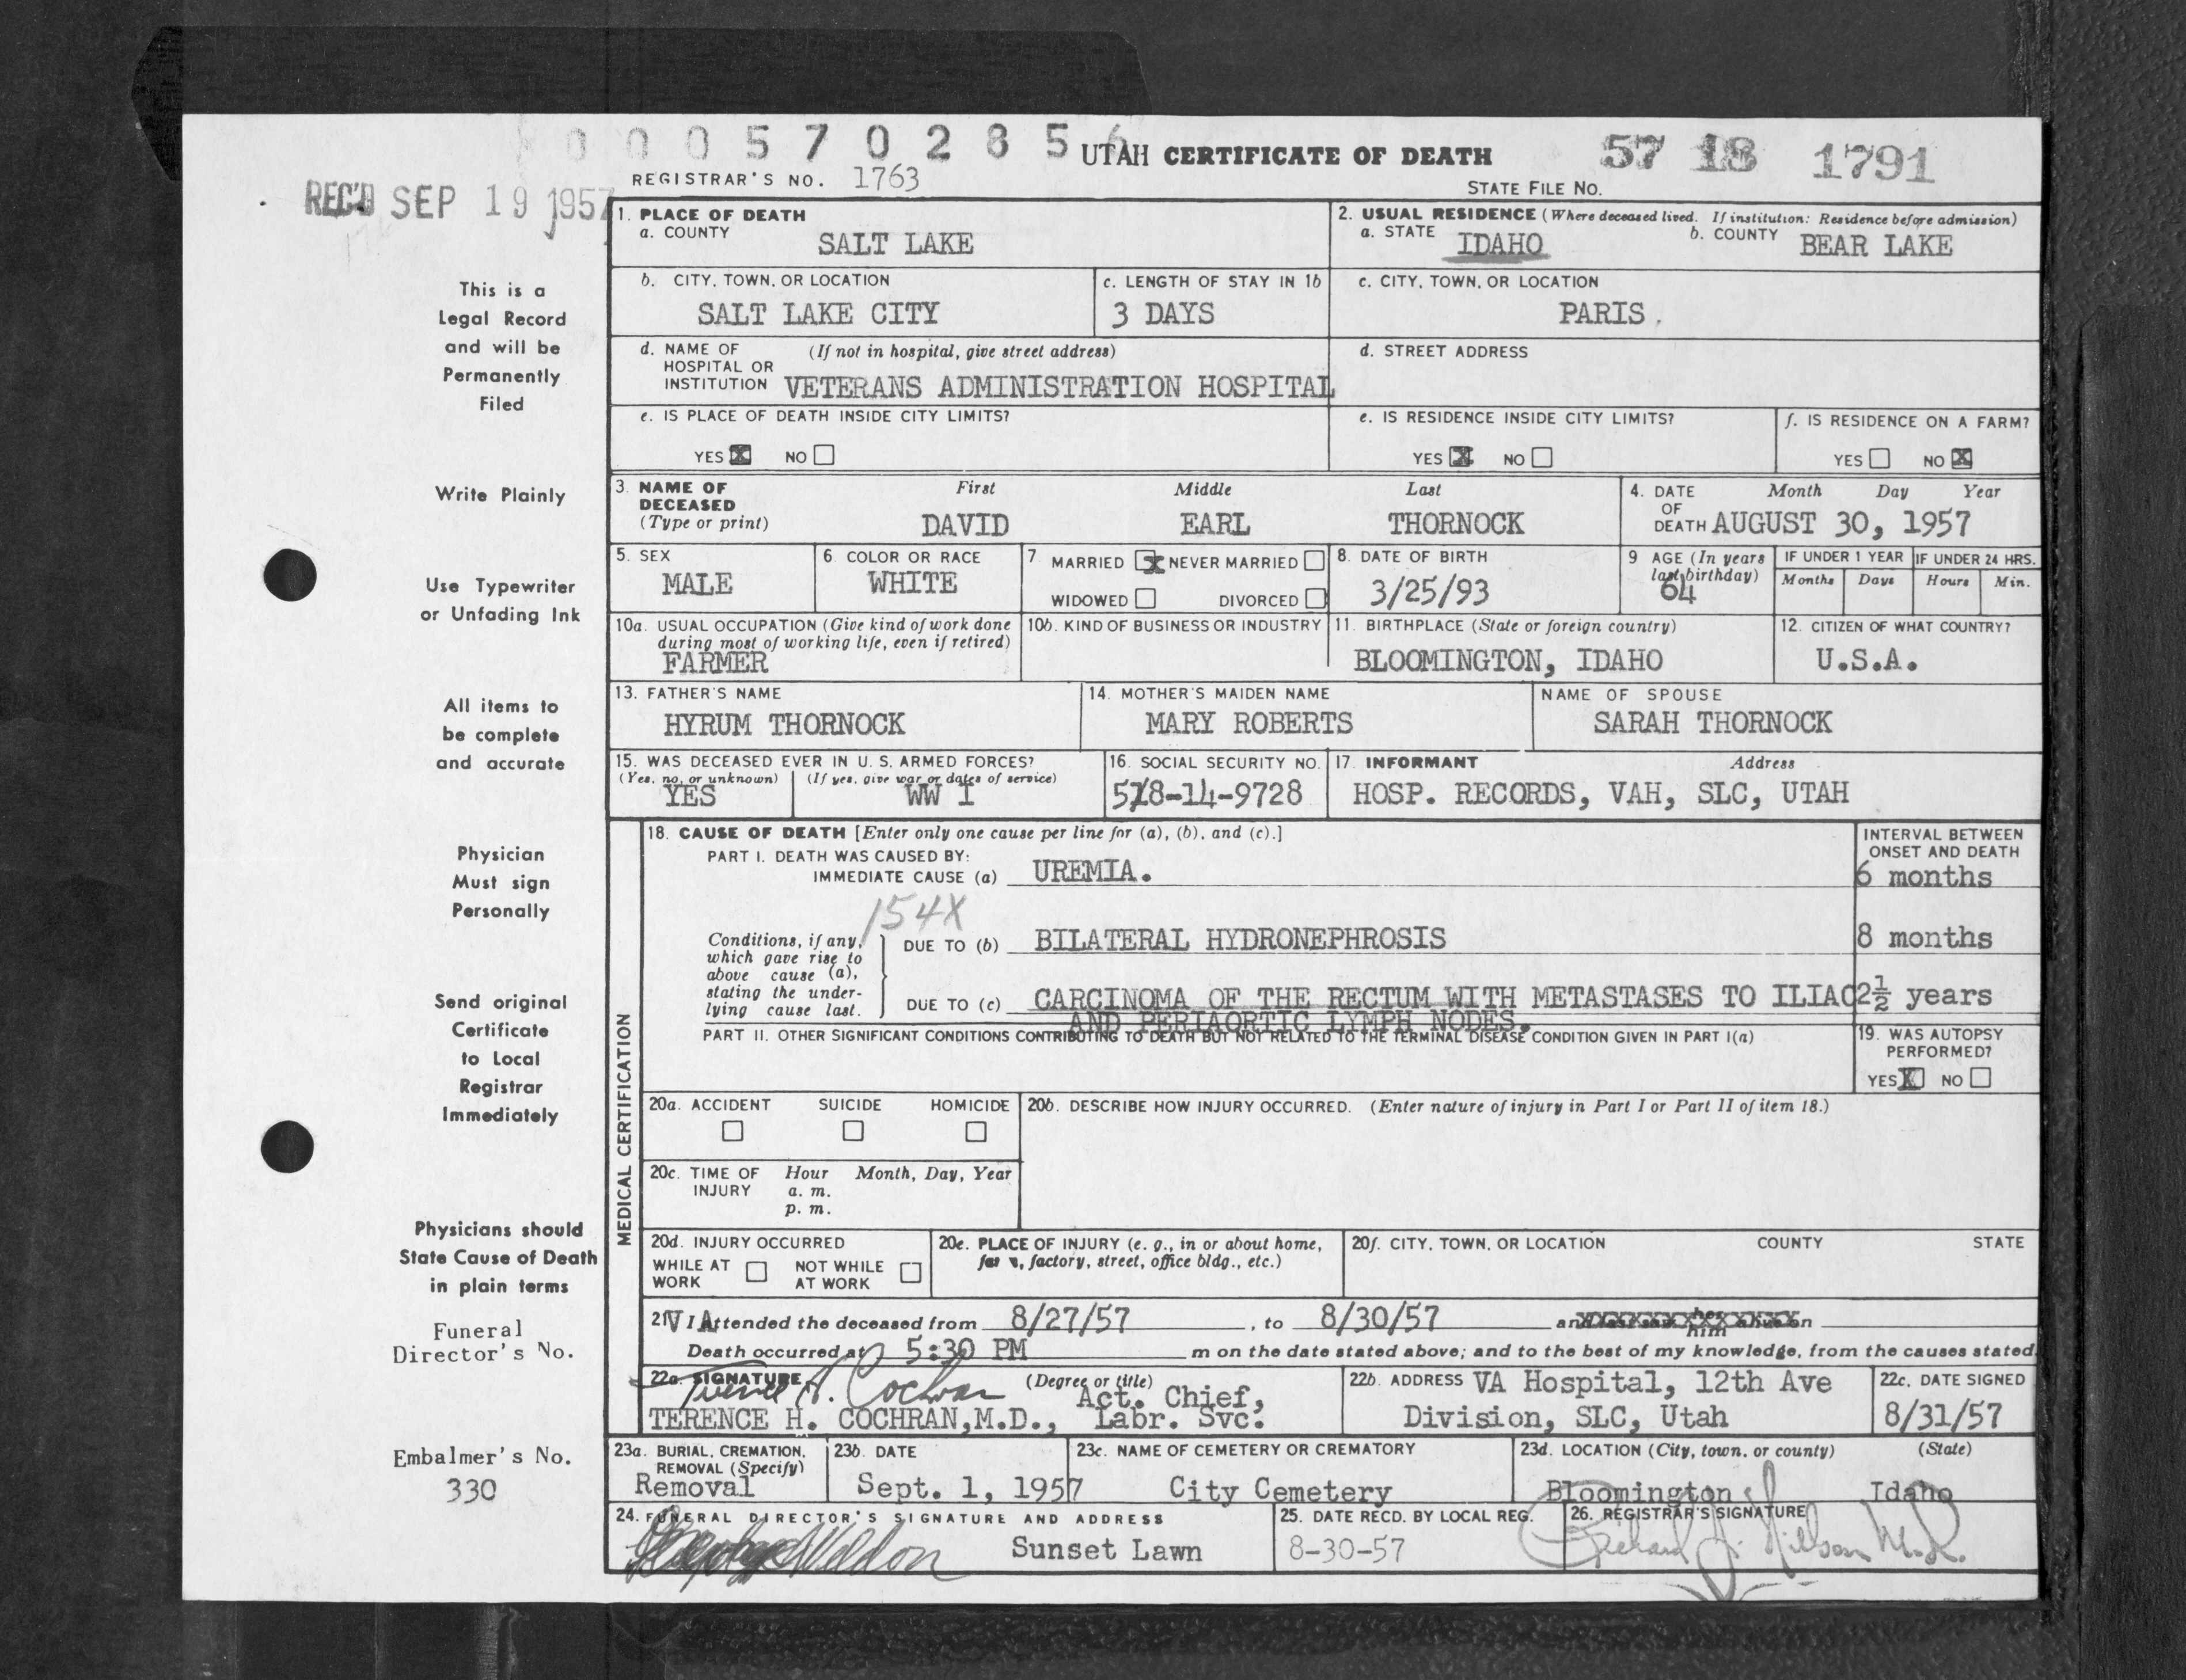 0 0 0 5 7 0 2 8 5 6
UTAH CERTIFICATE OF DEATH
57 18 1791
REGISTRAR'S NO. 1763
STATE FILE NO.
REC'D SEP 19 1957
1. PLACE OF DEATH
a. COUNTY
SALT LAKE
2. USUAL RESIDENCE (Where deceased lived. If institution: Residence before admission)
a. STATE IDAHO b. COUNTY BEAR LAKE
b. CITY, TOWN, OR LOCATION
SALT LAKE CITY
c. LENGTH OF STAY IN 1b
3 DAYS
c. CITY, TOWN, OR LOCATION
PARIS.
d. NAME OF HOSPITAL OR INSTITUTION (If not in hospital, give street address)
VETERANS ADMINISTRATION HOSPITAL
d. STREET ADDRESS
e. IS PLACE OF DEATH INSIDE CITY LIMITS?
YES X NO
e. IS RESIDENCE INSIDE CITY LIMITS?
YES X NO
f. IS RESIDENCE ON A FARM?
YES NO X
3. NAME OF DECEASED (Type or print)
First Middle Last
DAVID EARL THORNOCK
4. DATE OF DEATH Month Day Year
AUGUST 30, 1957
5. SEX
MALE
6. COLOR OR RACE
WHITE
7 MARRIED X NEVER MARRIED
WIDOWED DIVORCED
8. DATE OF BIRTH
3/25/93
9 AGE (In years last birthday)
64
IF UNDER 1 YEAR
Months Days
IF UNDER 24 HRS.
Hours Min.
10a. USUAL OCCUPATION (Give kind of work done during most of working life, even if retired)
FARMER
10b. KIND OF BUSINESS OR INDUSTRY
11. BIRTHPLACE (State or foreign country)
BLOOMINGTON, IDAHO
12. CITIZEN OF WHAT COUNTRY?
U.S.A.
13. FATHER'S NAME
HYRUM THORNOCK
14. MOTHER'S MAIDEN NAME
MARY ROBERTS
NAME OF SPOUSE
SARAH THORNOCK
15. WAS DECEASED EVER IN U. S. ARMED FORCES?
(Yes, no, or unknown) (If yes, give war or dates of service)
YES WW I
16. SOCIAL SECURITY NO.
518-14-9728
17. INFORMANT Address
HOSP. RECORDS, VAH, SLC, UTAH
MEDICAL CERTIFICATION
18. CAUSE OF DEATH [Enter only one cause per line for (a), (b), and (c).]
INTERVAL BETWEEN ONSET AND DEATH
PART I. DEATH WAS CAUSED BY:
IMMEDIATE CAUSE (a) UREMIA. 6 months
154X
Conditions, if any, which gave rise to above cause (a), stating the underlying cause last.
DUE TO (b) BILATERAL HYDRONEPHROSIS 8 months
DUE TO (c) CARCINOMA OF THE RECTUM WITH METASTASES TO ILIAC 2½ years
AND PERIAORTIC LYMPH NODES.
PART II. OTHER SIGNIFICANT CONDITIONS CONTRIBUTING TO DEATH BUT NOT RELATED TO THE TERMINAL DISEASE CONDITION GIVEN IN PART I(a)
19. WAS AUTOPSY PERFORMED?
YES X NO
20a. ACCIDENT SUICIDE HOMICIDE
20b. DESCRIBE HOW INJURY OCCURRED. (Enter nature of injury in Part I or Part II of item 18.)
20c. TIME OF INJURY Hour Month, Day, Year
a. m.
p. m.
20d. INJURY OCCURRED
WHILE AT WORK NOT WHILE AT WORK
20e. PLACE OF INJURY (e. g., in or about home, farm, factory, street, office bldg., etc.)
20f. CITY, TOWN, OR LOCATION COUNTY STATE
21 VI Attended the deceased from 8/27/57, to 8/30/57 and
Death occurred at 5:30 PM m on the date stated above; and to the best of my knowledge, from the causes stated.
22a. SIGNATURE (Degree or title)
Terence H. Cochran Act. Chief,
TERENCE H. COCHRAN, M.D., Labr. Svc.
22b. ADDRESS VA Hospital, 12th Ave
Division, SLC, Utah
22c. DATE SIGNED
8/31/57
23a. BURIAL, CREMATION, REMOVAL (Specify)
Removal
23b. DATE
Sept. 1, 1957
23c. NAME OF CEMETERY OR CREMATORY
City Cemetery
23d. LOCATION (City, town, or county) (State)
Bloomington Idaho
24. FUNERAL DIRECTOR'S SIGNATURE AND ADDRESS
Sunset Lawn
25. DATE RECD. BY LOCAL REG.
8-30-57
26. REGISTRAR'S SIGNATURE
Richard J. Nilson M.D.
This is a
Legal Record
and will be
Permanently
Filed
Write Plainly
Use Typewriter
or Unfading Ink
All items to
be complete
and accurate
Physician
Must sign
Personally
Send original
Certificate
to Local
Registrar
Immediately
Physicians should
State Cause of Death
in plain terms
Funeral
Director's No.
Embalmer's No.
330